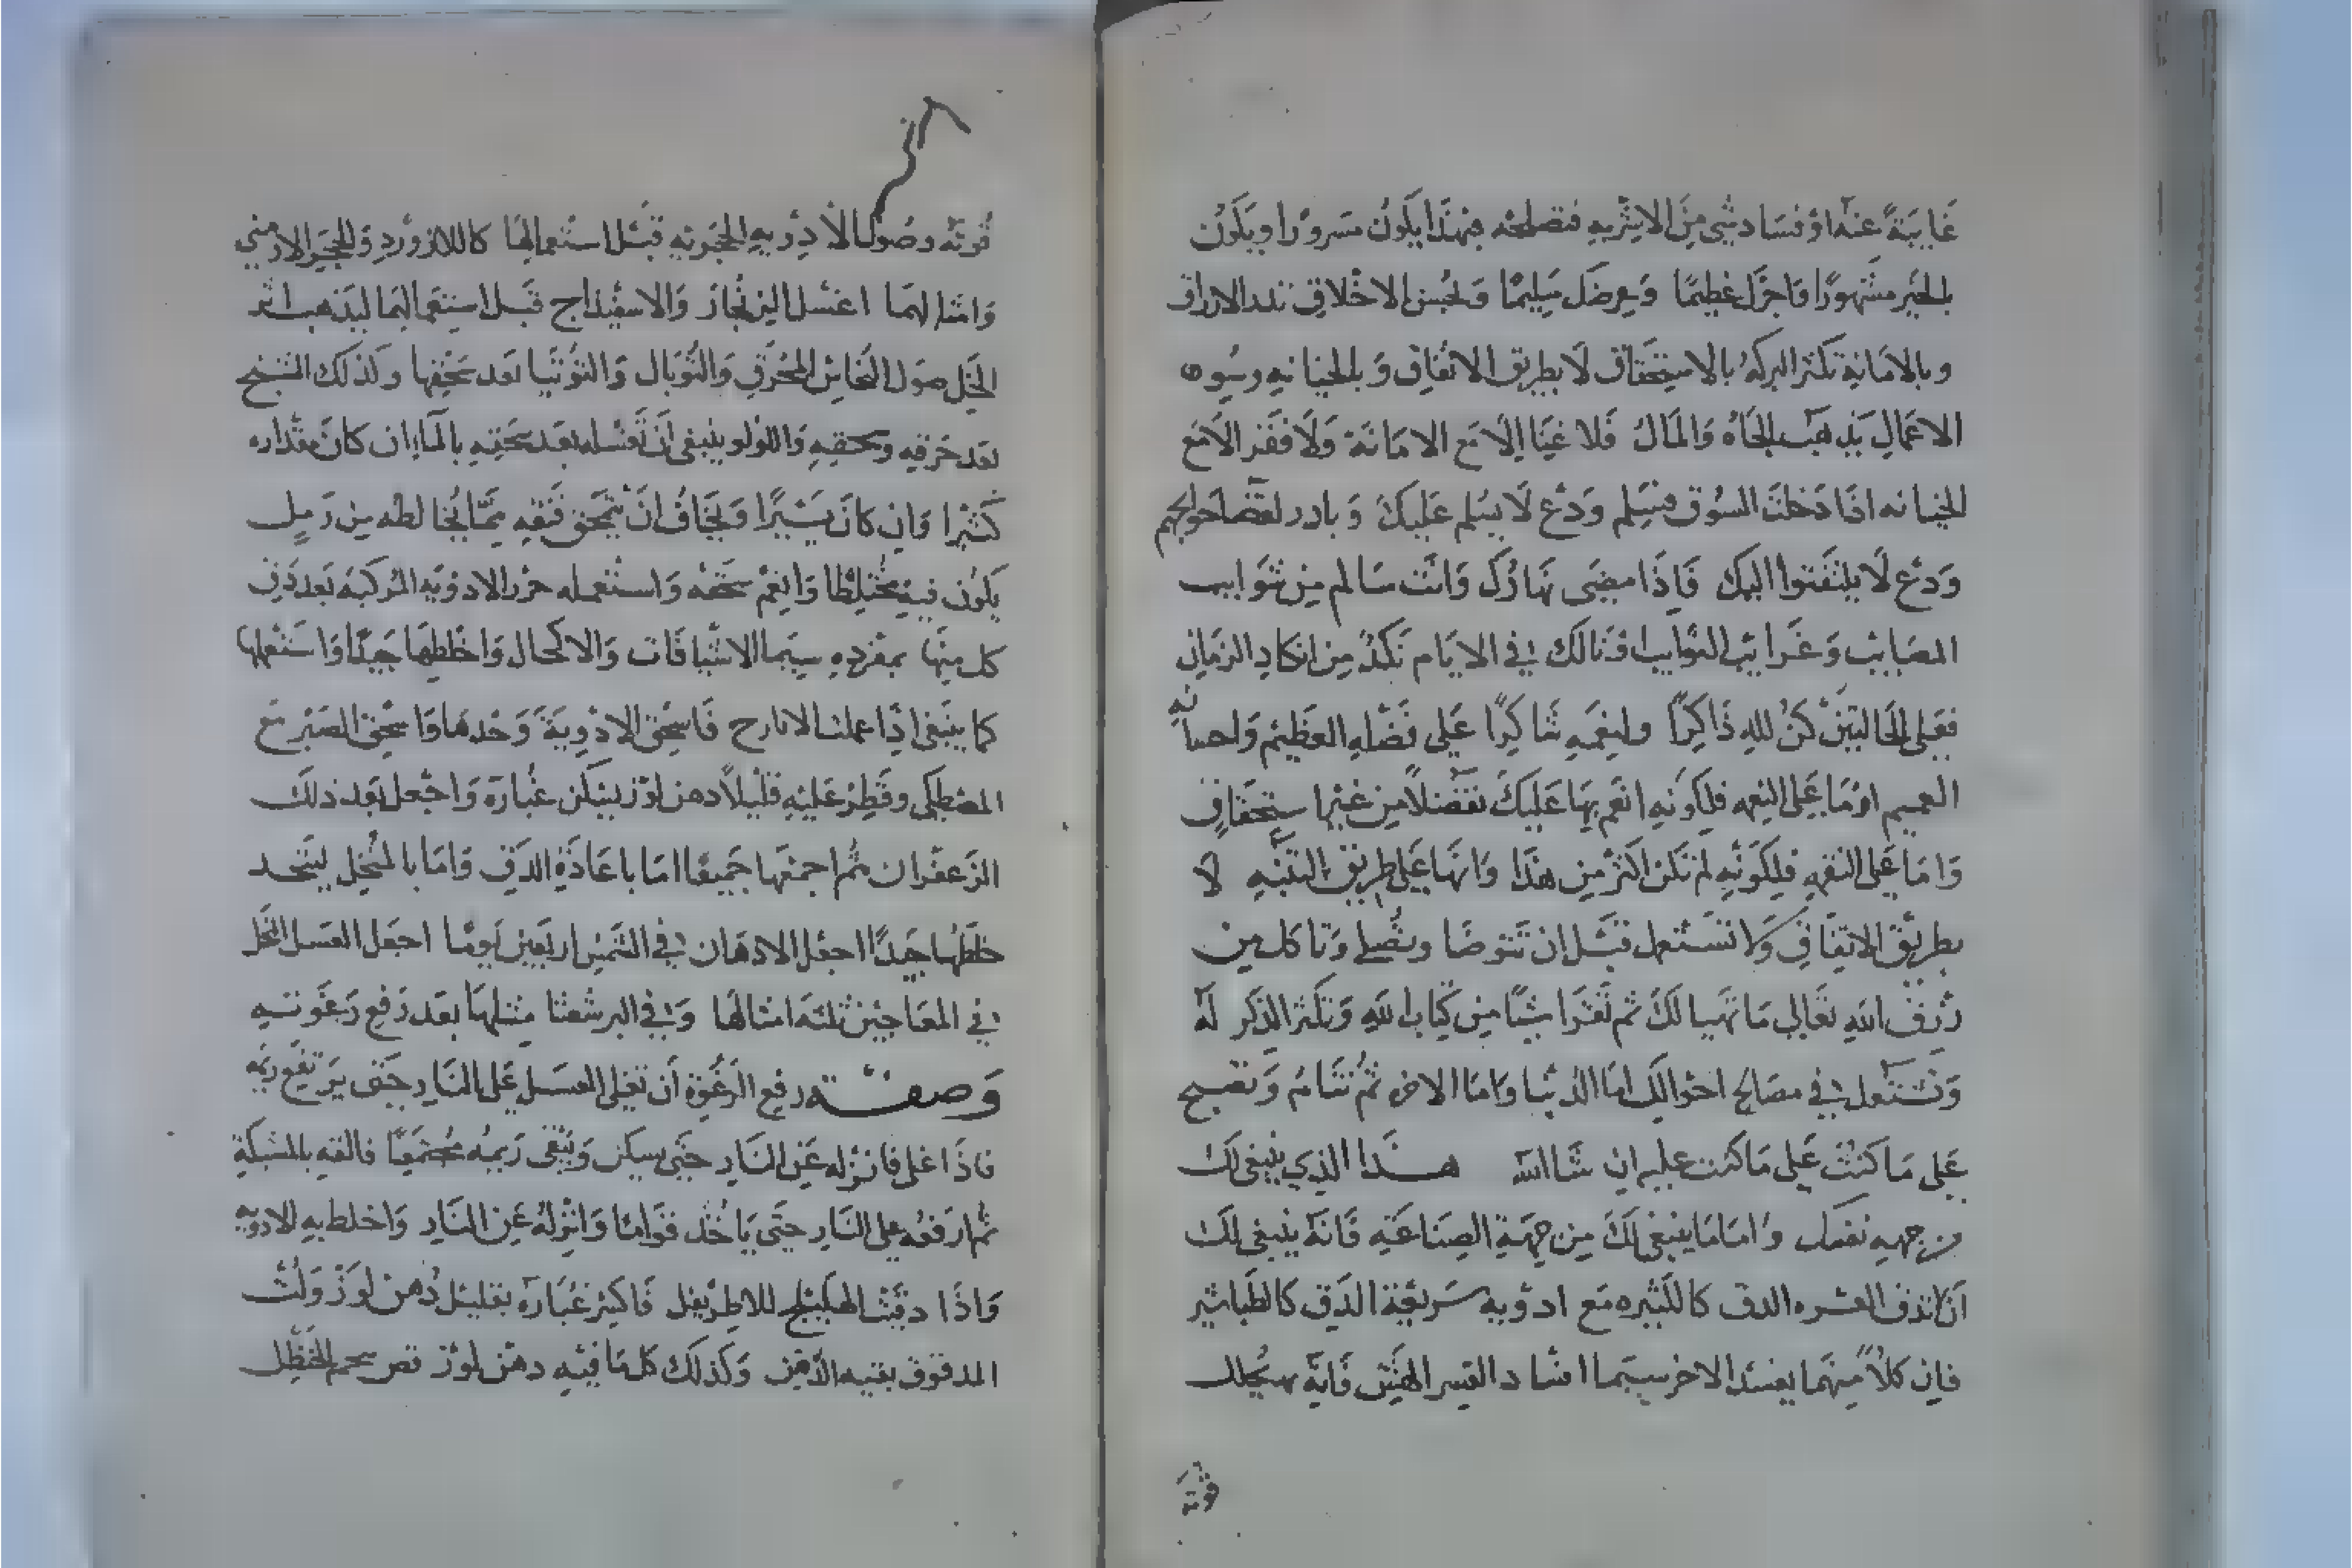 غَايبَةً عنه او فسَاد شى مِنَ الاشربه فتصلحه فبهَذا يَكونُ مسَرورًا ويَكونُ
بالخَير مشَهورًا وَاجرَك عَظيمًا وَعِرضَك سَلِيمًا وَبحُسن الاخْلاقِ تدر الارزاق
وبالامَانة تكثر البركَهُ بالاستِحقاقِ لاَ بطريق الاتفاق وَبالخيانهِ وسُوء
الاعمَالِ يَذهَب الجَاهُ وَالمَالُ فَلا غِنَا الاَّ مَع الامَانَة وَلاَ فقَر الاَّ مَع
الخيانه اذَا دَخلتَ السُوق فسَلم وَدَع لاَ يسَلم عَليكَ وَبادر لقضا حَوايجهم
وَدَع لاَ يلتَفتوا اليك فَاِذَا مضَى نهَارُكَ وَانتَ سَالم مِن شَوايب
المصَايبْ وَغَرايب النوايب اوَ نالك في الايَام نَكدُ مِن انكادِ الزمَانِ
فعَلى الحَالتين كُنْ للهِ ذَاكِرًا ولنِعَمهِ شَاكِرًا عَلى فَضْلهِ العَظيم وَاحسانهِ
العميم اوّمَا عَلى النِعمه فلِكونهِ انعَم بهَا عَليكَ تفضلاً مِن غيرِ استِحقَاقٍ
وَامَا عَلى النقمهِ فلِكَونهِ لم تكن اكثر مِن هذَا وَانهَا عَلى طريق التنبيهِ لاَ
بطريق الاتفَاقِ وَلاَ تَشتغل قبَل ان تتوضَا وتُصَلى وتَاكل مِن
رزق الله تعَالى مَا تهيا لكَ ثم تَقرَا شيًا مِن كتَاب اللهِ وَتكثر الذكر لهُ
وَتَشتغل في مصَالح احوالك امَا الدنيا وَامَا الاخره ثم تنَام وَتصبح
عَلى مَا كنتَ عَلى مَا كنت عليه ان شَا الله هــذا الذي ينبغى لكَ
من جهه نفسك وَامَا مَا ينبغى لكَ مِن جِهَة الصِنَاعَةِ فَانهُ ينبغى لكَ
اَن لاَ تدق العسره الدق كالكثيره مَع ادويه سَريعَة الدَق كالطباشير
فاِن كلاً مِنهمَا يفسد الاخر سيما افسَاد العَسر الهَش فَانهُ يحلل
قوته
قُوته وصُول الأدويهِ الحجَريهِ قبَل استعمالهَا كاللازوَرد وَالحجَر الارمَنى
وَامثالهمَا اغسل الزنجار وَالاسفيداج قبَل استِعمَالهمَا ليذهب اثر
الخَل صَول النحَاس المحرَق وَالتُوبَال وَالتُوتيا بَعد سَحقِهَا وَكذلكَ الشنج
بعَد حَرقهِ وسَحقهِ وَاللولو ينبغى اَن تَغسله بعَد سَحقِهِ بالمآ ان كانَ مقداره
كَثيرا وَان كانَ يسَيرًا وَتخَافُ اَن يَمحق فنَقهِ ممَا يخالطه من رَملٍ
يَكون فيهِ مختلِطًا وَانعم سَحقه وَاستعمله حرر الادويه المركبه بعَد دَق
كل منهَا بمفرده سيمَا الاشيافَات وَالاكحَال وَاخلطهَا جَيدًا وَاستَعملها
كما ينبَغى اذَا عملت الايارج فاسحَق الادوِيَة وَحدهَا وَاسحَق الصَبر مَع
المصطَكى وقَطِر عَليهِ قليلاً دهن لوز يسكن غبَارهُ وَاجعل بَعد ذلكَ
الزعفران ثم اجمعهَا جَميعًا امَا باعَادَة الدَق وَامَا بالمنخل ليتَحد
خلطها جَيدًا اجعَل الادهَان في الشمس اربَعين يَومًا اجعَل العسَل النحَل
في المعَاجين ثلثة امثالهَا وَفي البرشعثا مثليهَا بَعد رَفع رَغوتهِ
وَصفـــة رفع الرغوة اَن تغلى العسَل عَلى النَار حتى يَرتفع رَيمه
فاذَا غلى فانزله عَن النَار حَتى يسكن وَيَبقى رَيمُه مجُتَمعًا فالقه بالمشبكة
ثم ارفعُه على النَار حتى يَاخُذ قوَامًا وَانزلهُ عَن النَار وَاخلط بهِ الادويه
وَاذَا دققت الهليلج للاطريفل فاكسر غبَارهُ بقليل دُهن لوز وَلُت
المدقوق بقيه الدُهن وَكذلكَ كل مَا فيهِ دهن لوز قص شحم الحنظل